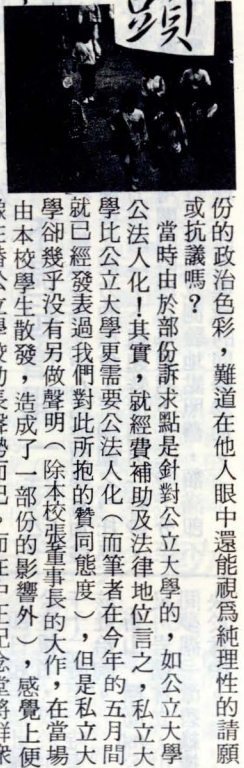 頭
份的政治色彩，難道在他人眼中還能視爲純理性的請願
或抗議嗎？
當時由於部份訴求點是針對公立大學的，如公立大學
公法人化！其實，就經費補助及法律地位言之，私立大
學比公立大學更需要公法人化（而筆者在今年的五月間
就已經發表過我們對此所抱的贊同態度），但是私立大
學卻幾乎没有另做聲明（除本校張董事長的大作，在當場
由本校學生散發，造成了一部份的影響外），感覺上便
公立學校助長聲勢而已。而在中正紀念堂將群眾